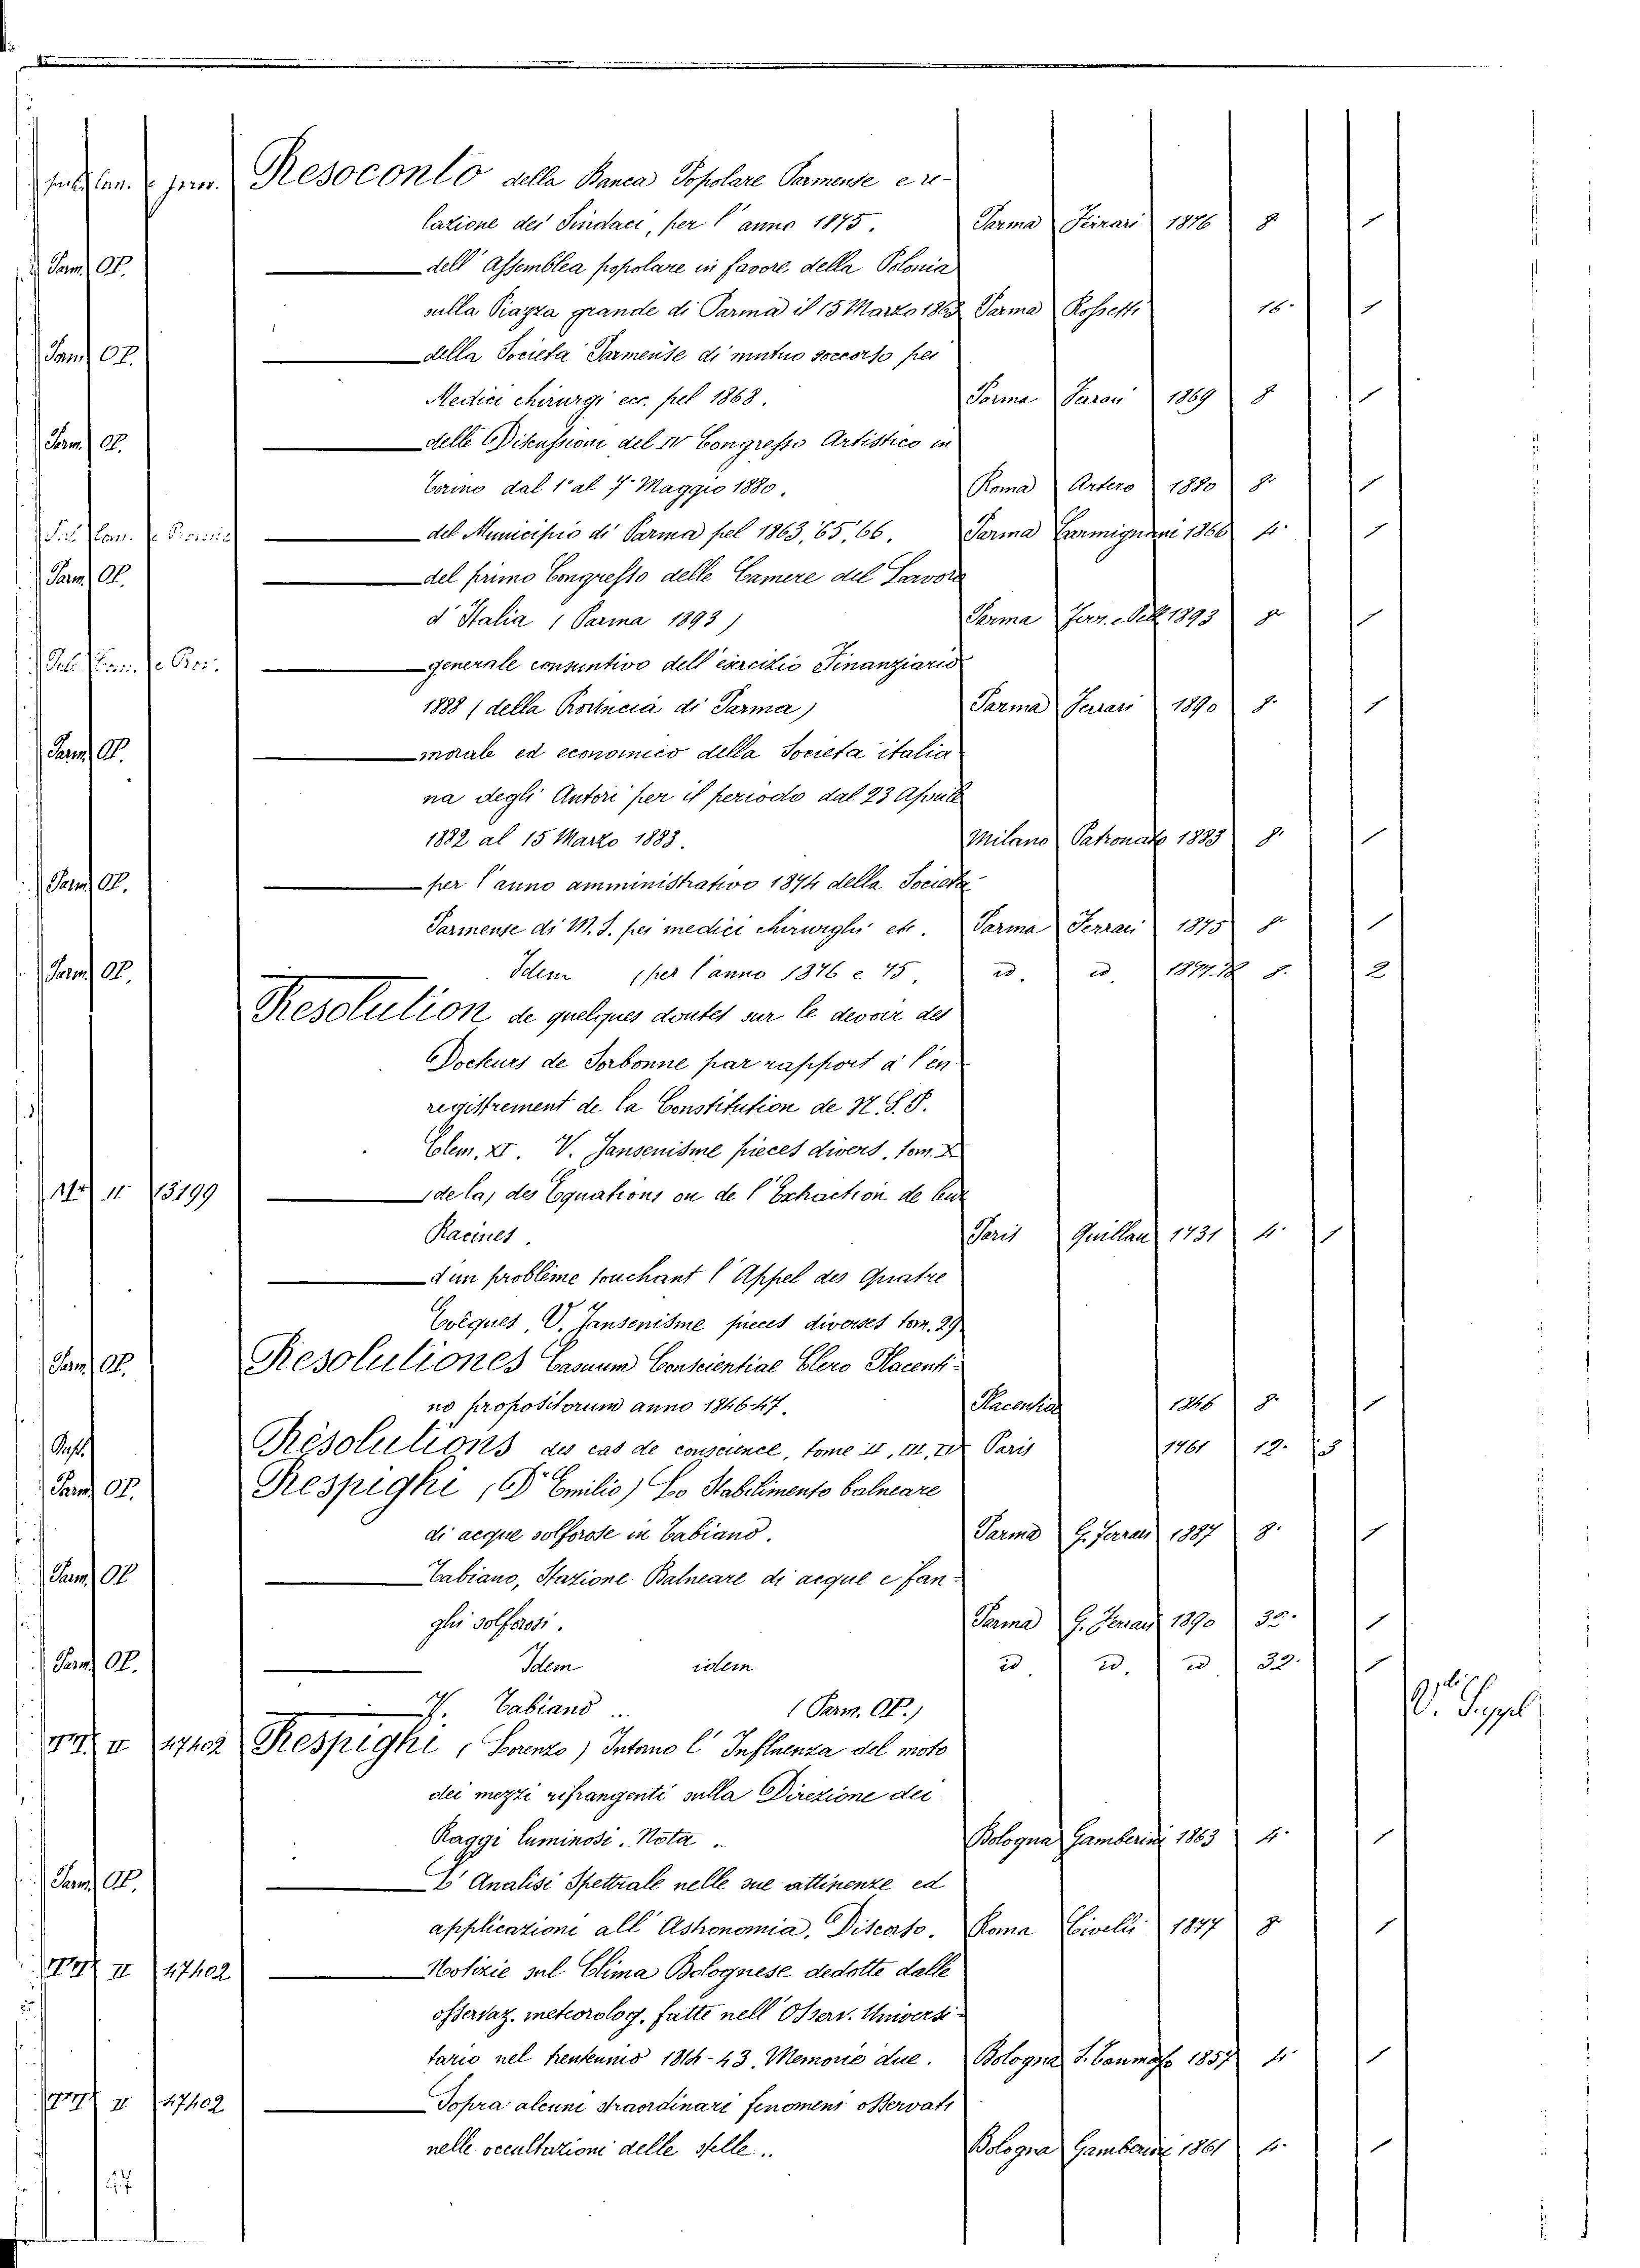 Resoconto della Banca Popolare Parmense e re-
lazione dei Sindaci, per l'anno 1875. Parma Ferrari 1876 8 1
Parm. Op. ——— dell'Assemblea popolare in favore della Polonia
sulla Piazza grande di Parma il 15 Marzo 1863 Parma Rossetti 16. 1
Parm. Op. ——— della Società Parmense di mutuo soccorso pei
Medici chirurgi ecc. pel 1868. Parma Ferrari 1869 8 1
Parm. Op. ——— delle Discussioni del IV Congresso Artistico in
Torino dal 1° al 7 Maggio 1880. Roma Artero 1880 8. 1
——— del Municipio di Parma pel 1863, 65, 66. Parma Carmignani 1866 4. 1
Parm. Op. ——— del primo Congresso delle Camere del Lavoro
d'Italia (Parma 1893) Parma Ferr. e Pell. 1893 8. 1
——— generale consuntivo dell'esercizio Finanziario
1888 (della Provincia di Parma) Parma Ferrari 1890 8. 1
Parm. Op. ——— morale ed economico della Società italia
na degli Autori per il periodo dal 23 Aprile
1882 al 15 Marzo 1883. Milano Patronato 1883 8. 1
Parm. Op. ——— per l'anno amministrativo 1874 della Società
Parmense di M. S. pei medici chirurghi etc. Parma Ferrari 1875 8. 1
Parm. Op. Idem (per l'anno 1876 e 75, id. id. 1877.78 8. 2
Resolution de quelques doutes sur le devoir des
Docteurs de Sorbonne par rapport à l'en
registrement de la Constitution de N. S. P.
Clem. XI. V. Jansenisme pieces divers. tom. X
13199 ——— (de la) des Equations ou de l'Extraction de leur
Racines. Paris Quillau 1731 4. 1
——— d'un problème touchant l'Appel des Quatre
Evêques, V. Jansenisme pieces diverses tom. 29
Parm. Op. Resolutiones Casuum Conscientiae Clero Placenti-
no propositorum anno 1846 47. Placentiae 1846 8. 1
Résolutions des cas de conscience, tome II, III, IV Paris 1761 12. 3
Parm. Op. Respighi, (Dr Emilio) Lo Stabilimento balneare
di acque solforose in Tabiano. Parma G. Ferrari 1887 8. 1
Parm. Op ——— Tabiano, Stazione Balneare di acque e fan-
ghi solforosi. Parma G. Ferrari 1890 32. 1
Parm. Op. ——— Idem idem id. id. id 32. 1
——— V. Tabiano ... (Parm. Op.) V. Suppl.
II 47402 Respighi, (Lorenzo) Intorno l'Influenza del moto
dei mezzi rifrangenti sulla Direzione dei
Raggi luminosi. Nota. Bologna Gamberini 1863 4. 1
Parm. Op. ——— L'Analisi Spettrale nelle sue attinenze ed
applicazioni all'Astronomia. Discorso. Roma Civelli 1877 8 1
II 47402 ——— Notizie sul Clima Bolognese dedotte dalle
osservaz. meteorolog. fatte nell'Osserv. Universi-
tario nel trentennio 1814-43. Memorie due. Bologna S. Tommaso 1857 4. 1
II 47402 ——— Sopra alcuni straordinari fenomeni osservati
nelle occultazioni delle stelle.. Bologna Gamberini 1861 4. 1